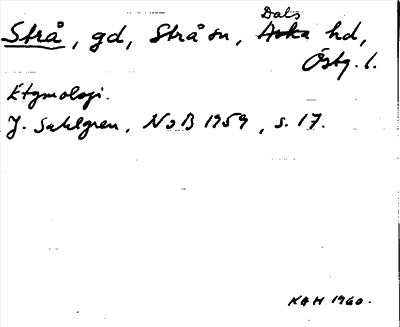 Strå, gd, Strå sn, Dals Aska hd,
Östg. l.
Etymologi.
J. Sahlgren, NoB 1959, s. 17.
KGH 1960.